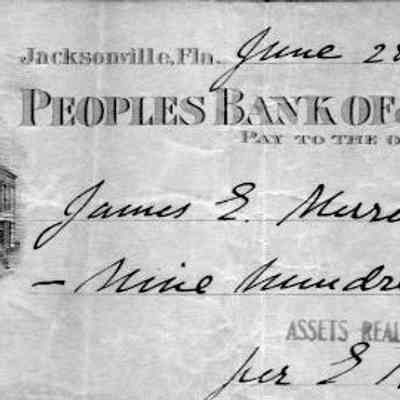 Jacksonville, Fla. June 28
PEOPLES BANK OF
PAY TO THE O
James E. Merre
- Nine hundre
ASSETS REAL
per E